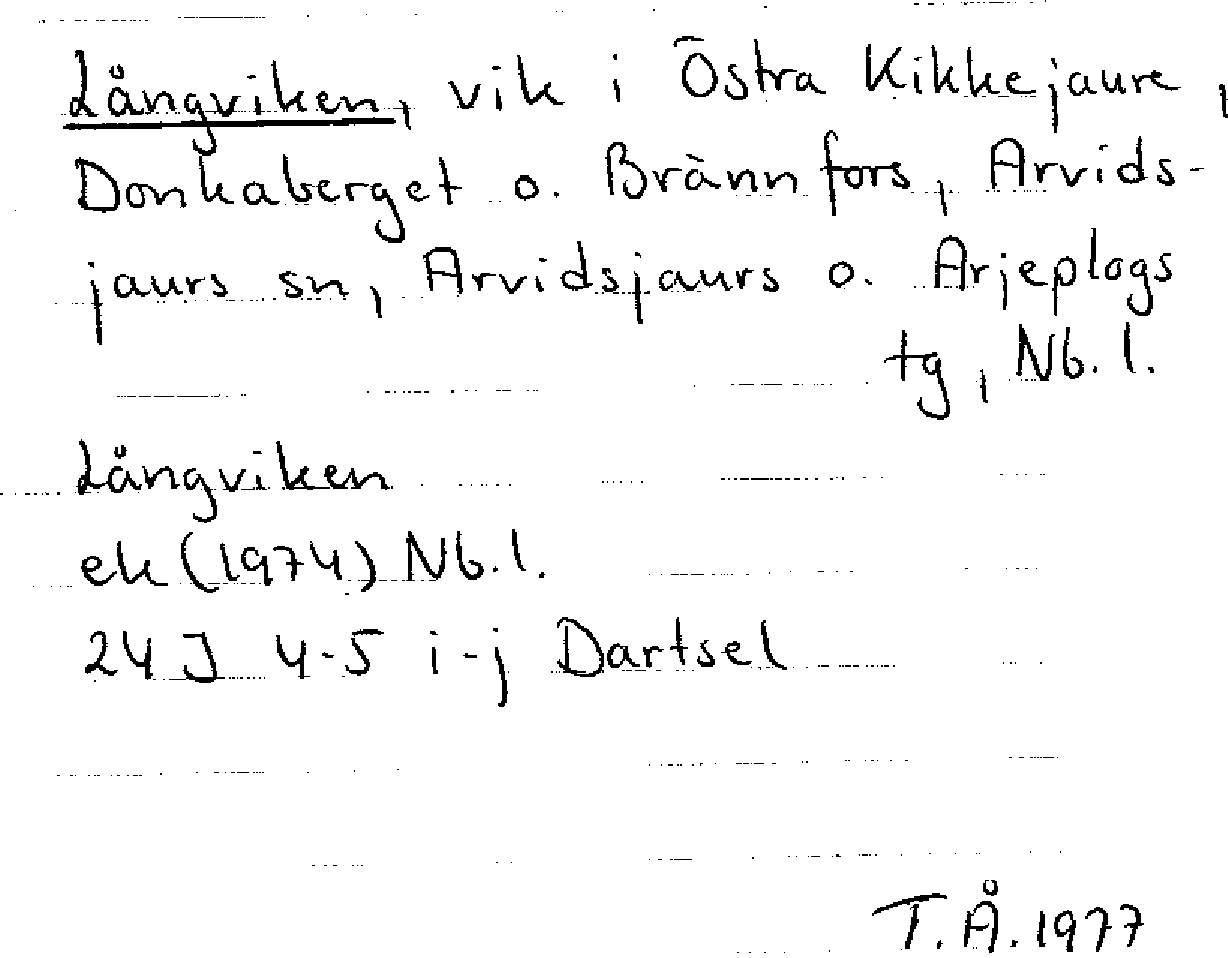 Långviken, vik i Östra Kikkejaure,
Donkaberget o. Brännfors, Arvids-
jaurs sn, Arvidsjaurs o. Arjeplogs
tg, Nb. l.
Långviken
ek (1974) Nb. l.
24 J 4-5 i-j Dartsel
T.Å. 1977